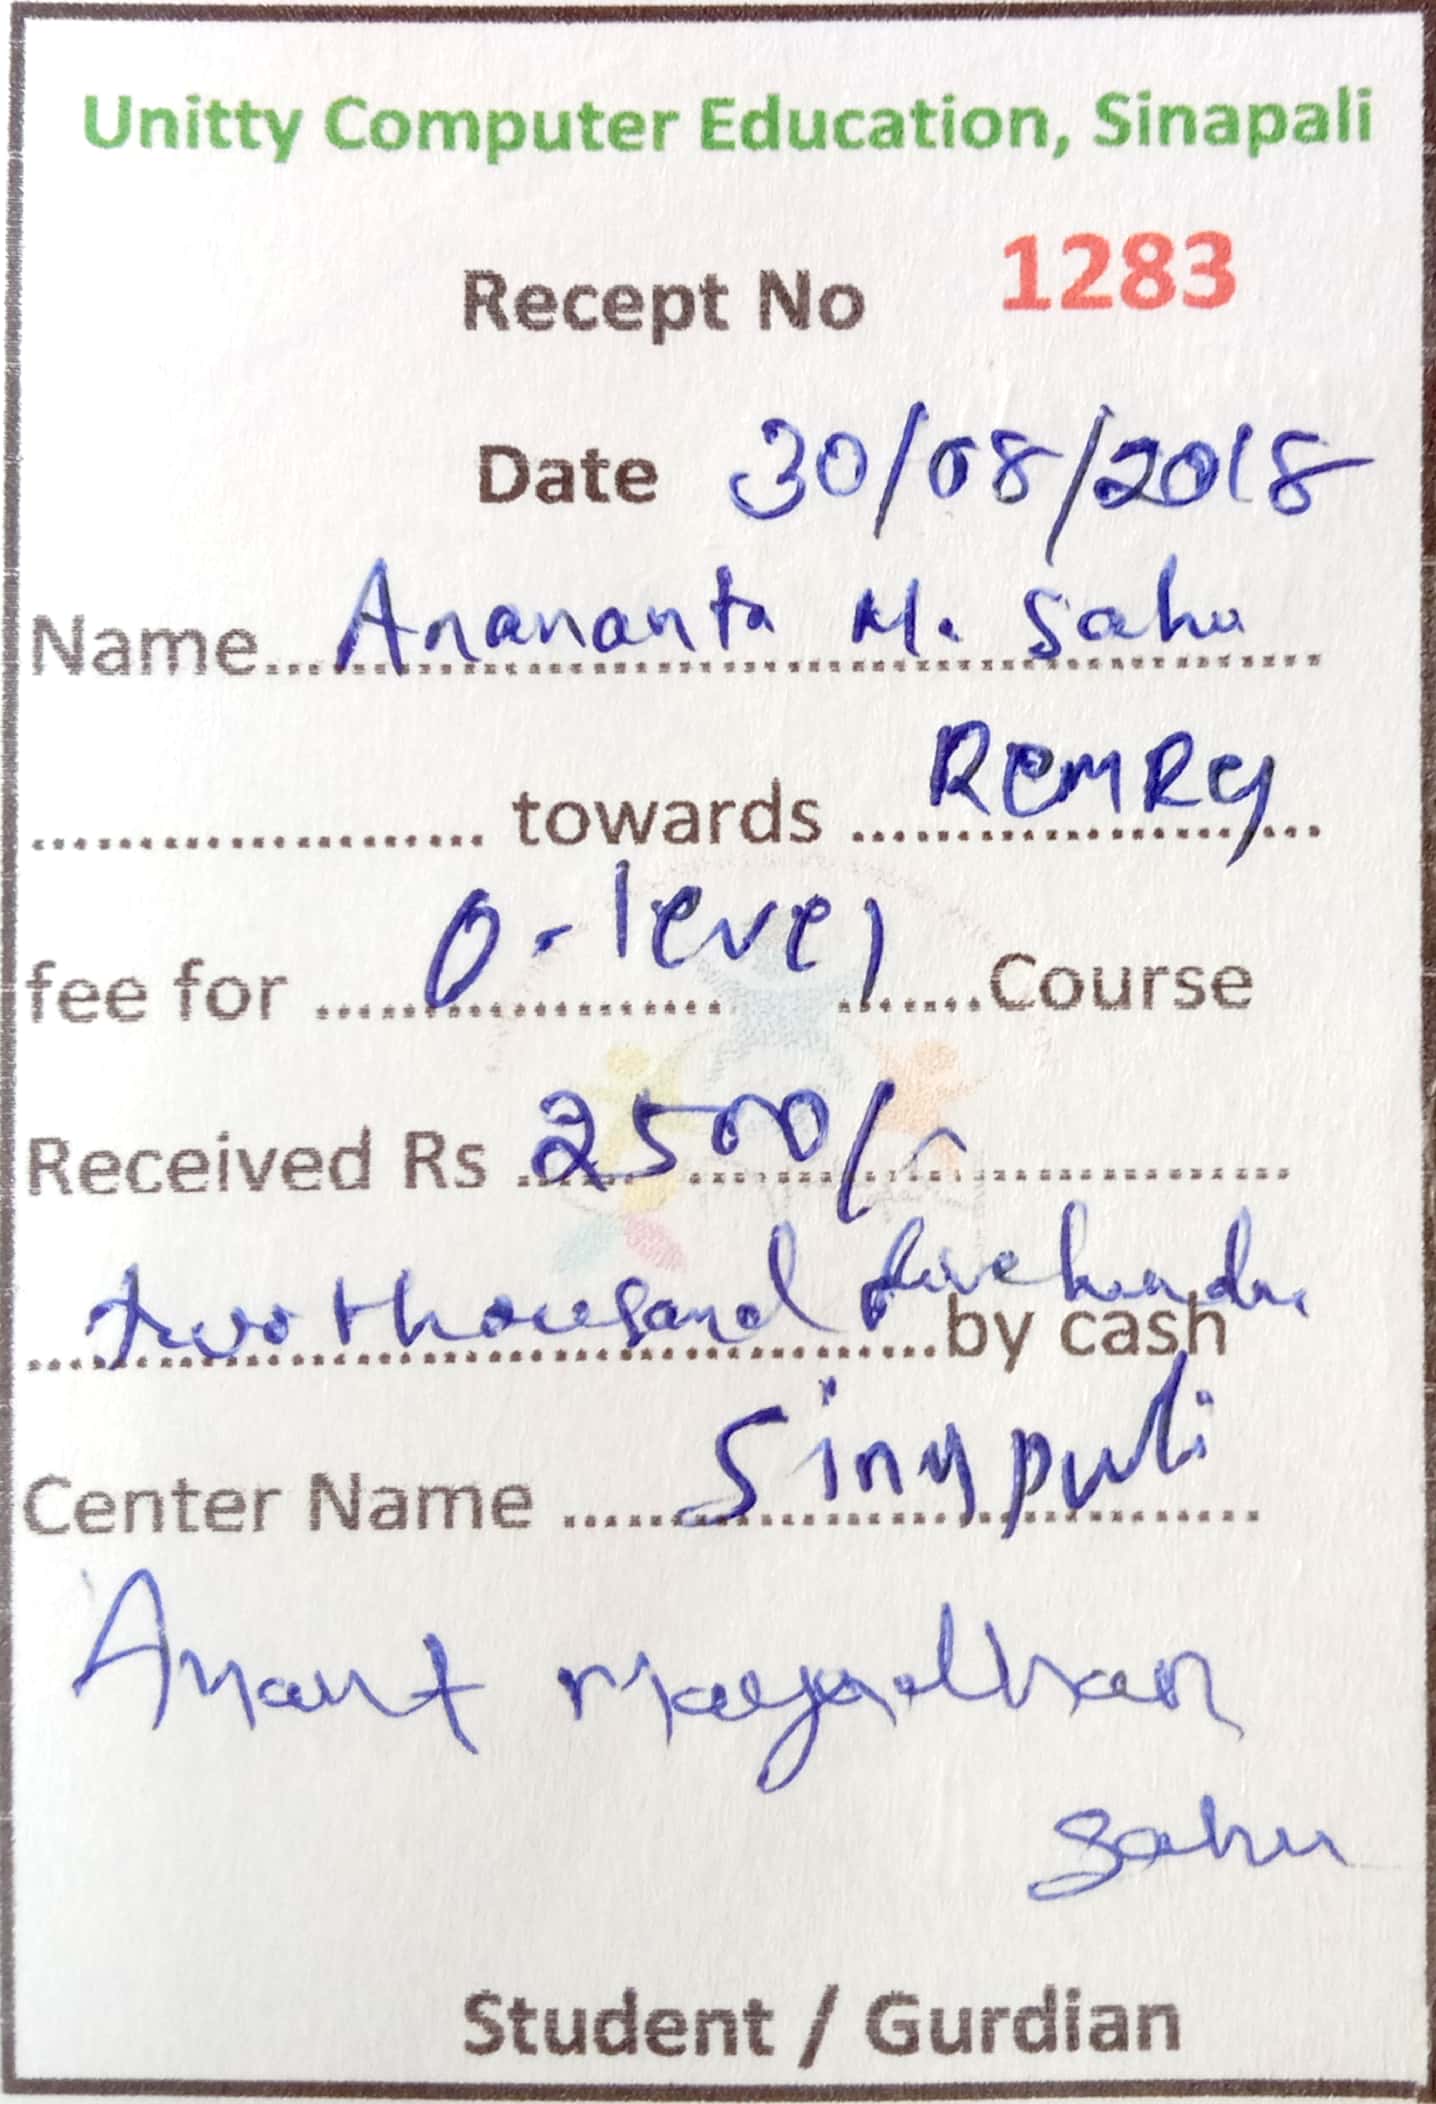 Unitty Computer Education, Sinapali
Recept No 1283
Date 30/08/2018
Name... Anananta M. Sahu
.................... towards ....................
fee for .......... O-level .......Course
Received Rs 2500/-
two thousand five hundr by cash
Center Name ...... Sinapali
Anant Mayadhar
Sahu
Student / Gurdian